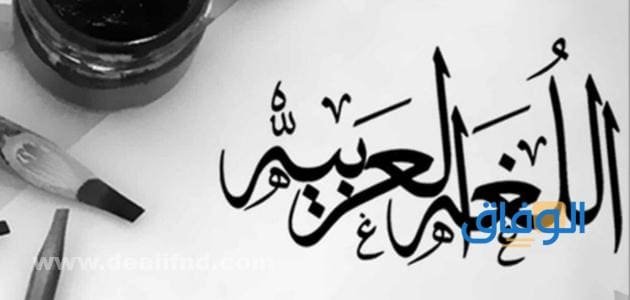 اللغة العربية
الوفاق
www.dealifnd.com